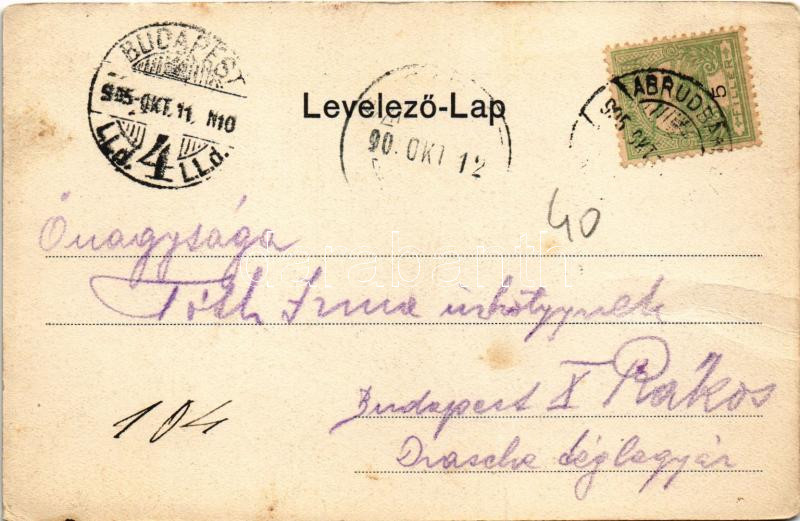 BUDAPEST
905-OKT.11. N10
4
LL.d. LL.d.
Levelező-Lap
90. OKT 12
ABRUDBÁ
905 OKT
5
FILLÉR
40
Őnagysága
Tóth Irma úrhölgynek
Budapest X Rákos
Drasche téglagyár
104
darabanth